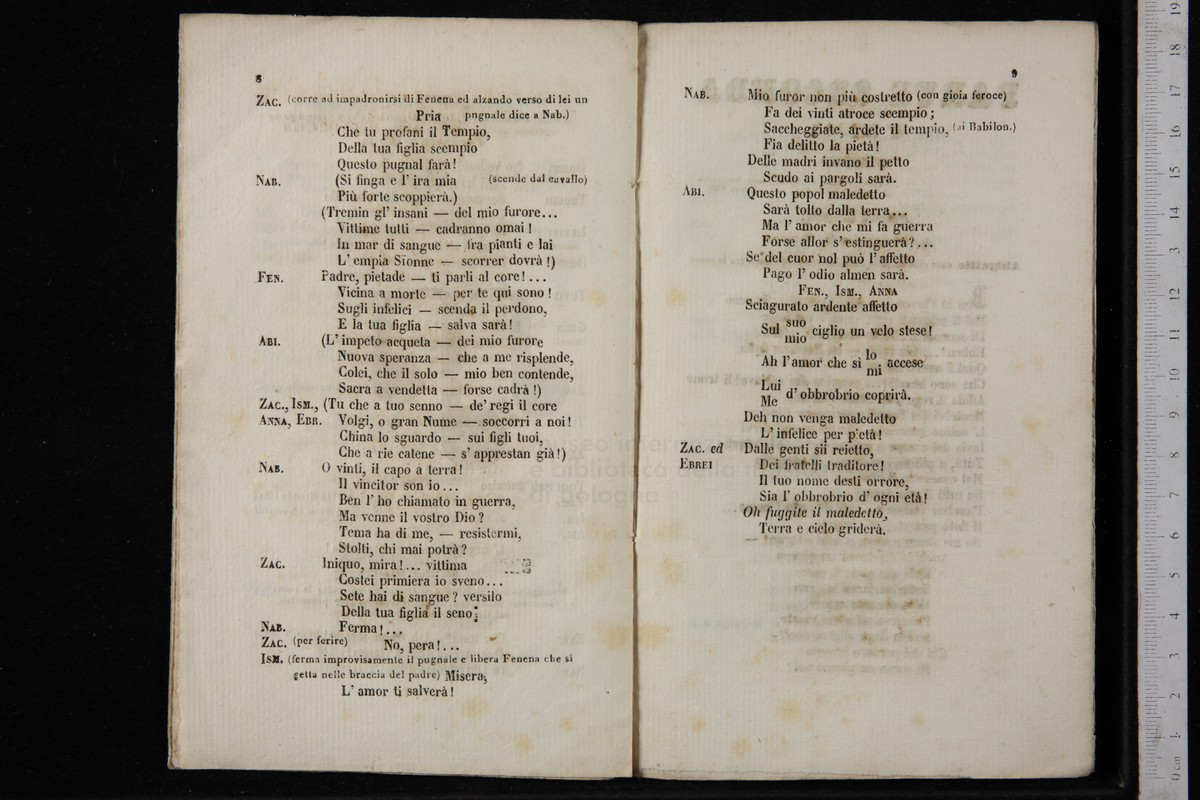 8
ZAC. (corre ad impadronirsi di Fenena ed alzando verso di lei un
Pria pugnale dice a Nab.)
Che tu profani il Tempio,
Della tua figlia scempio
Questo pugnal farà!
NAB. (Si finga e l' ira mia (scende dal cavallo)
Più forte scoppierà.)
(Tremin gl' insani — del mio furore...
Vittime tutti — cadranno omai!
In mar di sangue — fra pianti e lai
L' empia Sionne — scorrer dovrà!)
FEN. Padre, pietade — ti parli al core!...
Vicina a morte — per te qui sono!
Sugli infelici — scenda il perdono,
E la tua figlia — salva sarà!
ABI. (L' impeto acqueta — dei mio furore
Nuova speranza — che a me risplende,
Colei, che il solo — mio ben contende,
Sacra a vendetta — forse cadrà!)
ZAC., ISM., (Tu che a tuo senno — de' regi il core
ANNA, EBR. Volgi, o gran Nume — soccorri a noi!
China lo sguardo — sui figli tuoi,
Che a rie catene — s' apprestan già!)
NAB. O vinti, il capo a terra!
Il vincitor son io...
Ben l' ho chiamato in guerra,
Ma venne il vostro Dio?
Tema ha di me, — resistermi,
Stolti, chi mai potrà?
ZAC. Iniquo, mira!... vittima
Costei primiera io sveno...
Sete hai di sangue? versilo
Della tua figlia il seno;
NAB. Ferma!...
ZAC. (per ferire) No, pera!...
ISM. (ferma improvisamente il pugnale e libera Fenena che si
getta nelle braccia del padre) Misera,
L' amor ti salverà!
9
NAB. Mio furor non più costretto (con gioia feroce)
Fa dei vinti atroce scempio;
Saccheggiate, ardete il tempio, (ai Babilon.)
Fia delitto la pietà!
Delle madri invano il petto
Scudo ai pargoli sarà.
ABI. Questo popol maledetto
Sarà tolto dalla terra...
Ma l' amor che mi fa guerra
Forse allor s' estinguerà?...
Se del cuor nol può l' affetto
Pago l' odio almen sarà.
FEN., ISM., ANNA
Sciagurato ardente affetto
Sul suo ciglio un velo stese!
mio
Ah l' amor che sì lo accese
mi
Lui d' obbrobrio coprirà.
Me
Deh non venga maledetto
L' infelice per pietà!
ZAC. ed Dalle genti sii reietto,
EBREI Dei fratelli traditore!
Il tuo nome desti orrore,
Sia l' obbrobrio d' ogni età!
Oh fuggite il maledetto,
Terra e cielo griderà.
museo
e biblioteca
di bologna
0 cm 1 2 3 4 5 6 7 8 9 10 11 12 13 14 15 16 17 18 19